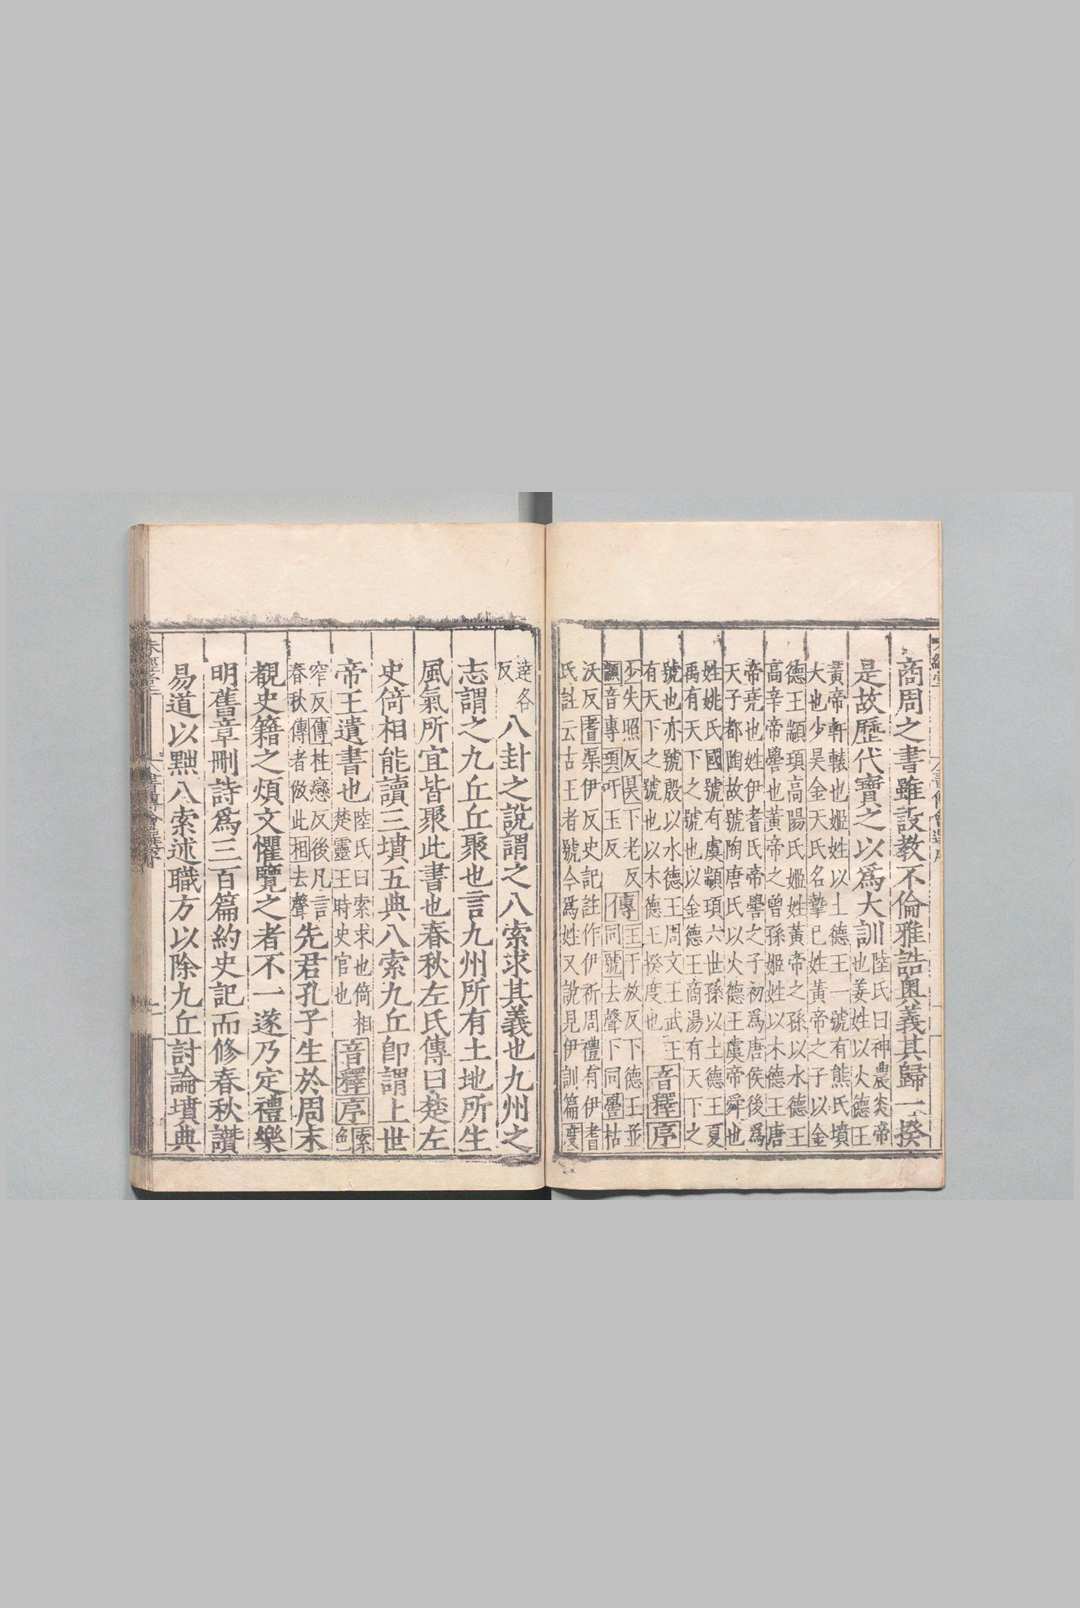 商周之書雖設教不倫雅誥奥義其歸一揆
是故歷代寶之以爲大訓陸氏曰神農炎帝
也姜姓以火德王
黃帝軒轅也姬姓以土德王一號有熊氏墳
大也少昊金天氏名摯已姓黃帝之子以金
德王顓頊高陽氏姬姓黃帝之孫以水德王
高辛帝嚳也黃帝之曾孫姬姓以木德王唐
帝堯也姓伊耆氏帝嚳之子初爲唐侯後爲
天子都陶故號陶唐氏以火德王虞帝舜也
姓姚氏國號有虞顓頊六世孫以土德王夏
禹有天下之號也以金德王商湯有天下之
號也亦號殷以水德王周文王武王
有天下之號也以木德王揆度也
音釋序
少失照反昊下老反
顓音專頊吁玉反
傳
王于放反下德王並
同號去聲下同嚳枯
沃反耆渠伊反史記註作伊祈周禮有伊耆
氏註云古王者號今爲姓又說見伊訓篇度
達各
反
八卦之說謂之八索求其義也九州之
志謂之九丘丘聚也言九州所有土地所生
風氣所宜皆聚此書也春秋左氏傳曰楚左
史倚相能讀三墳五典八索九丘卽謂上世
帝王遺書也陸氏曰索求也倚相
楚靈王時史官也
音釋序
索
色
窄反傳柱戀反後凡言
春秋傳者倣此相去聲
先君孔子生於周末
覩史籍之煩文懼覽之者不一遂乃定禮樂
明舊章刪詩爲三百篇約史記而修春秋讃
易道以黜八索述職方以除九丘討論墳典